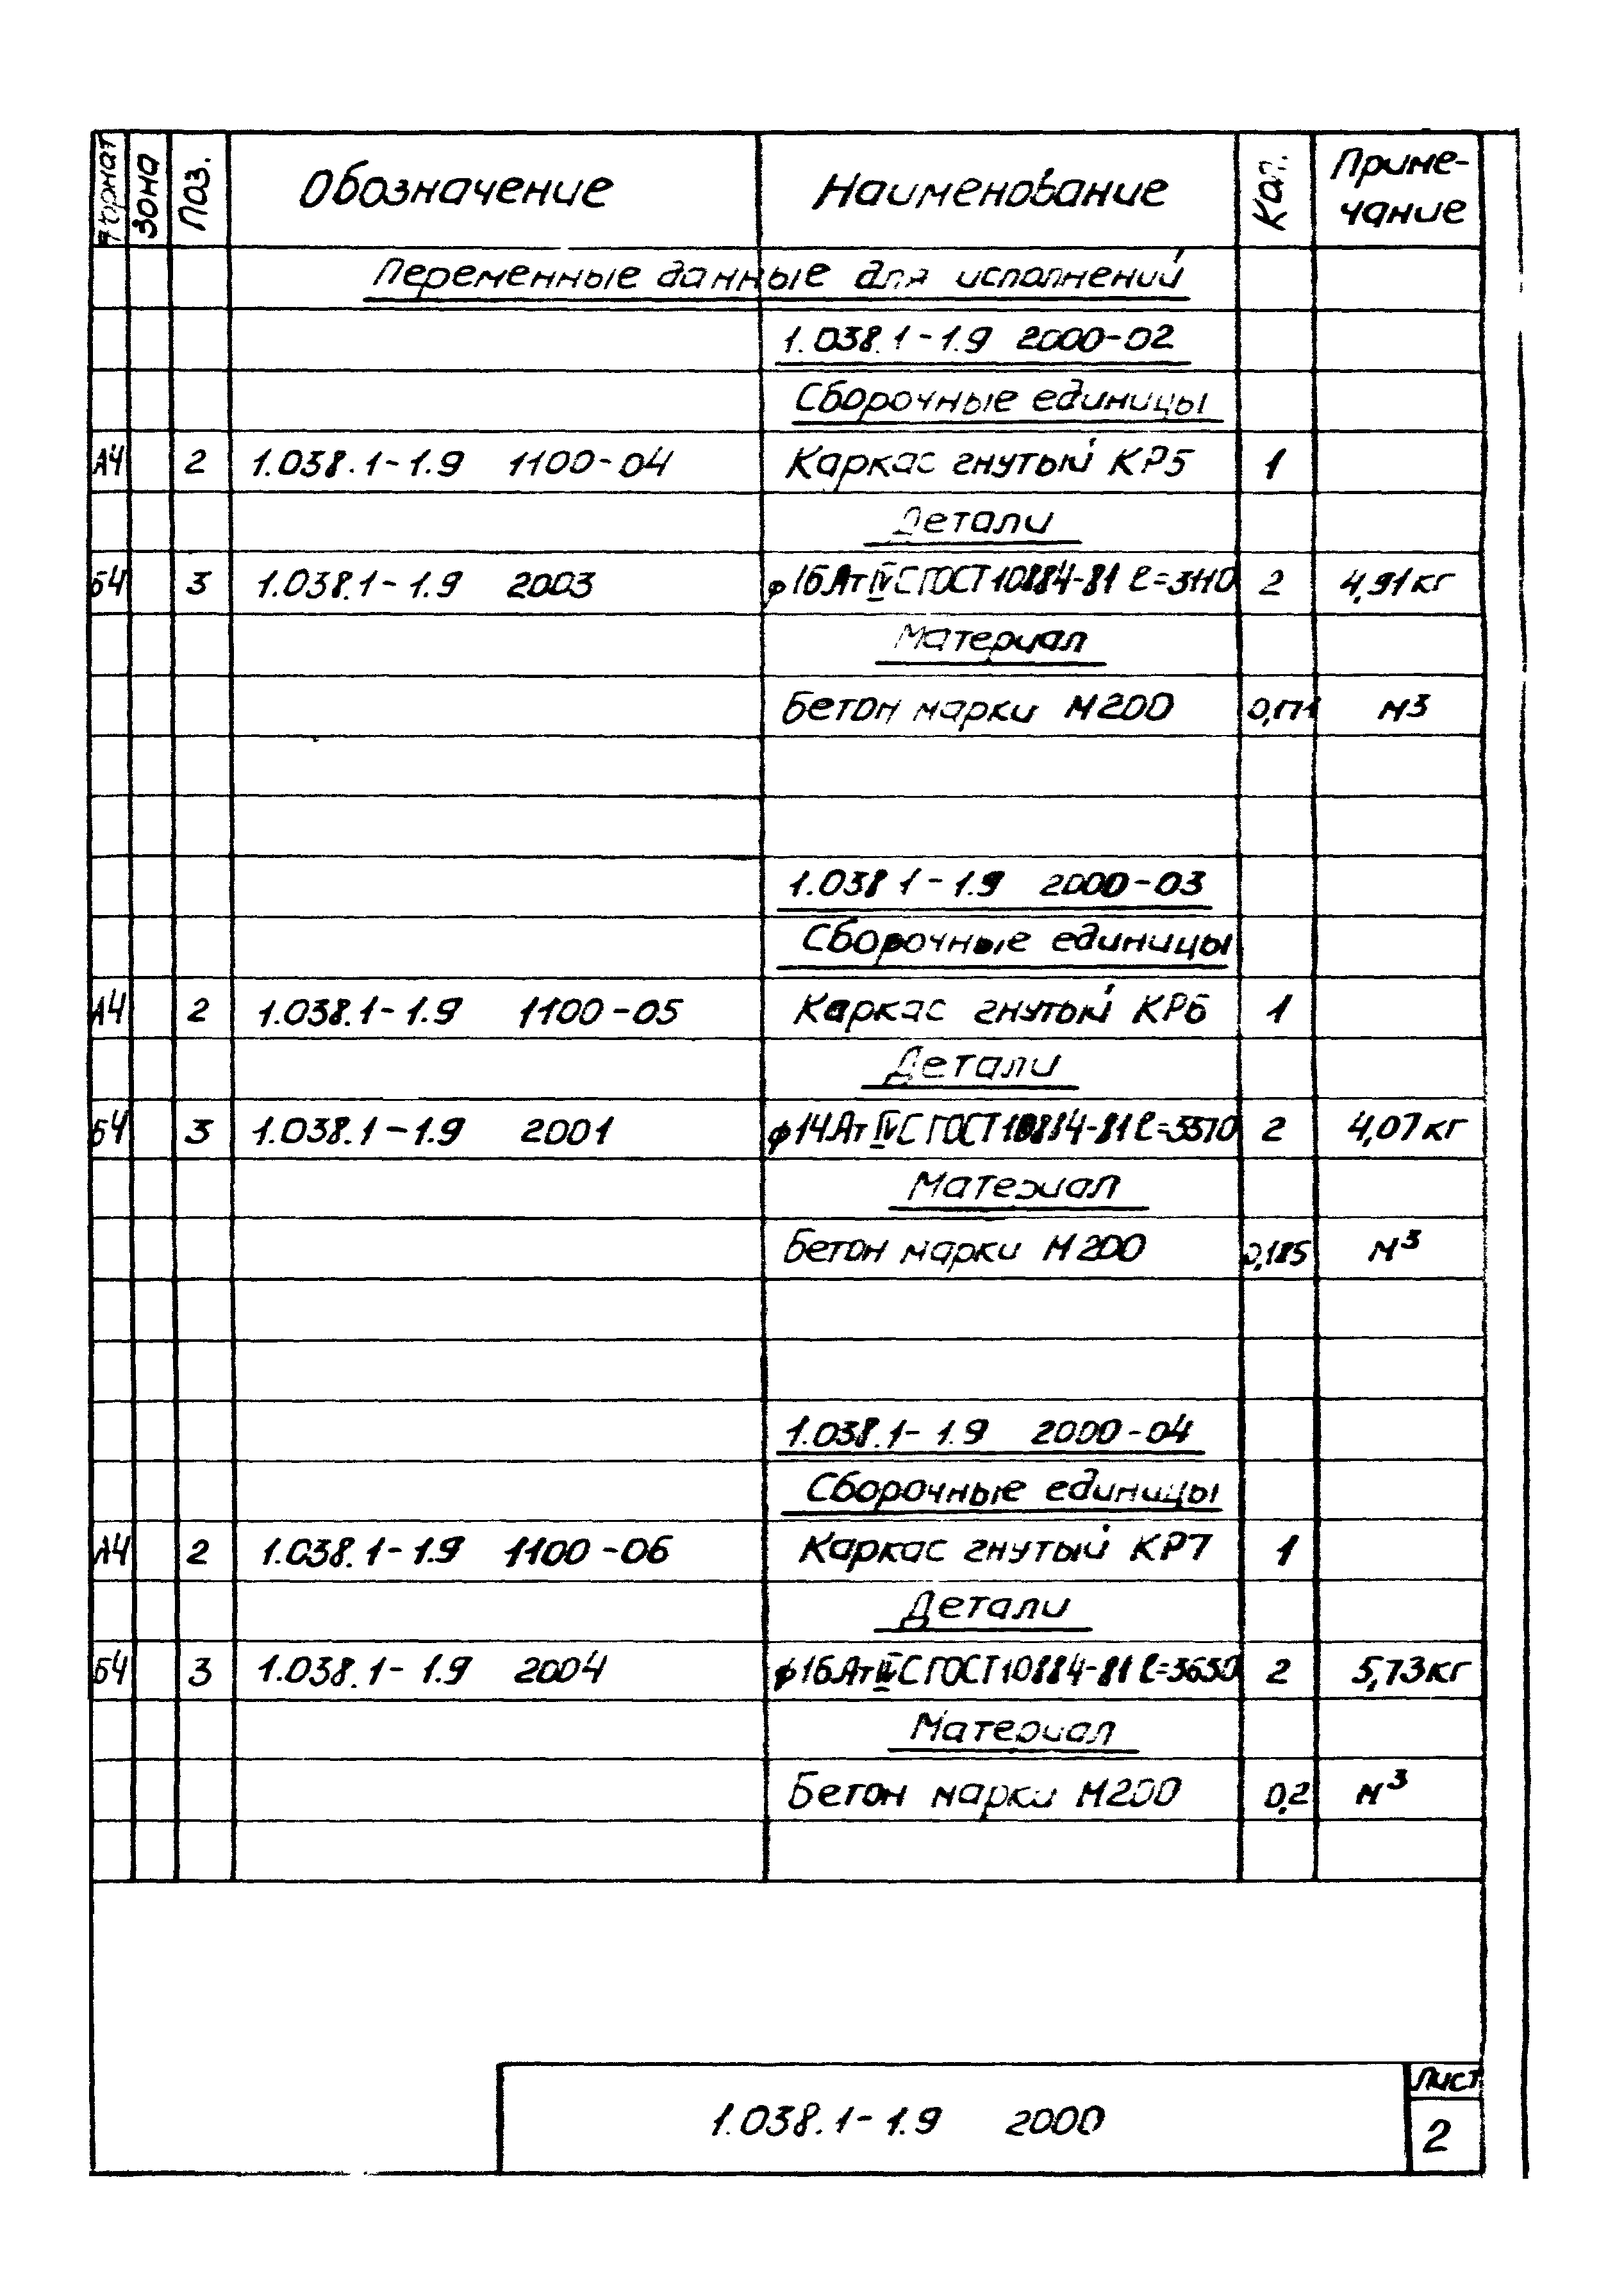 Формат Зона Поз. Обозначение Наименование Кол. Приме-
чание
Переменные данные для исполнений
1.038.1-1.9 2000-02
Сборочные единицы
А4 2 1.038.1-1.9 1100-04 Каркас гнутый КР5 1
Детали
Б4 3 1.038.1-1.9 2003 φ16АтIVС ГОСТ 10884-81 ℓ=3110 2 4,91кг
Материал
Бетон марки М200 0,171 м3
1.038 1-1.9 2000-03
Сборочные единицы
А4 2 1.038.1-1.9 1100-05 Каркас гнутый КР6 1
Детали
Б4 3 1.038.1-1.9 2001 φ14АтIVС ГОСТ 10884-81 ℓ=3370 2 4,07кг
Материал
Бетон марки М200 0,185 м³
1.038.1-1.9 2000-04
Сборочные единицы
А4 2 1.038.1-1.9 1100-06 Каркас гнутый КР7 1
Детали
Б4 3 1.038.1-1.9 2004 φ16АтIVС ГОСТ 10884-81 ℓ=3630 2 5,73кг
Материал
Бетон марки М200 0,2 м³
1.038.1-1.9 2000
Лист
2